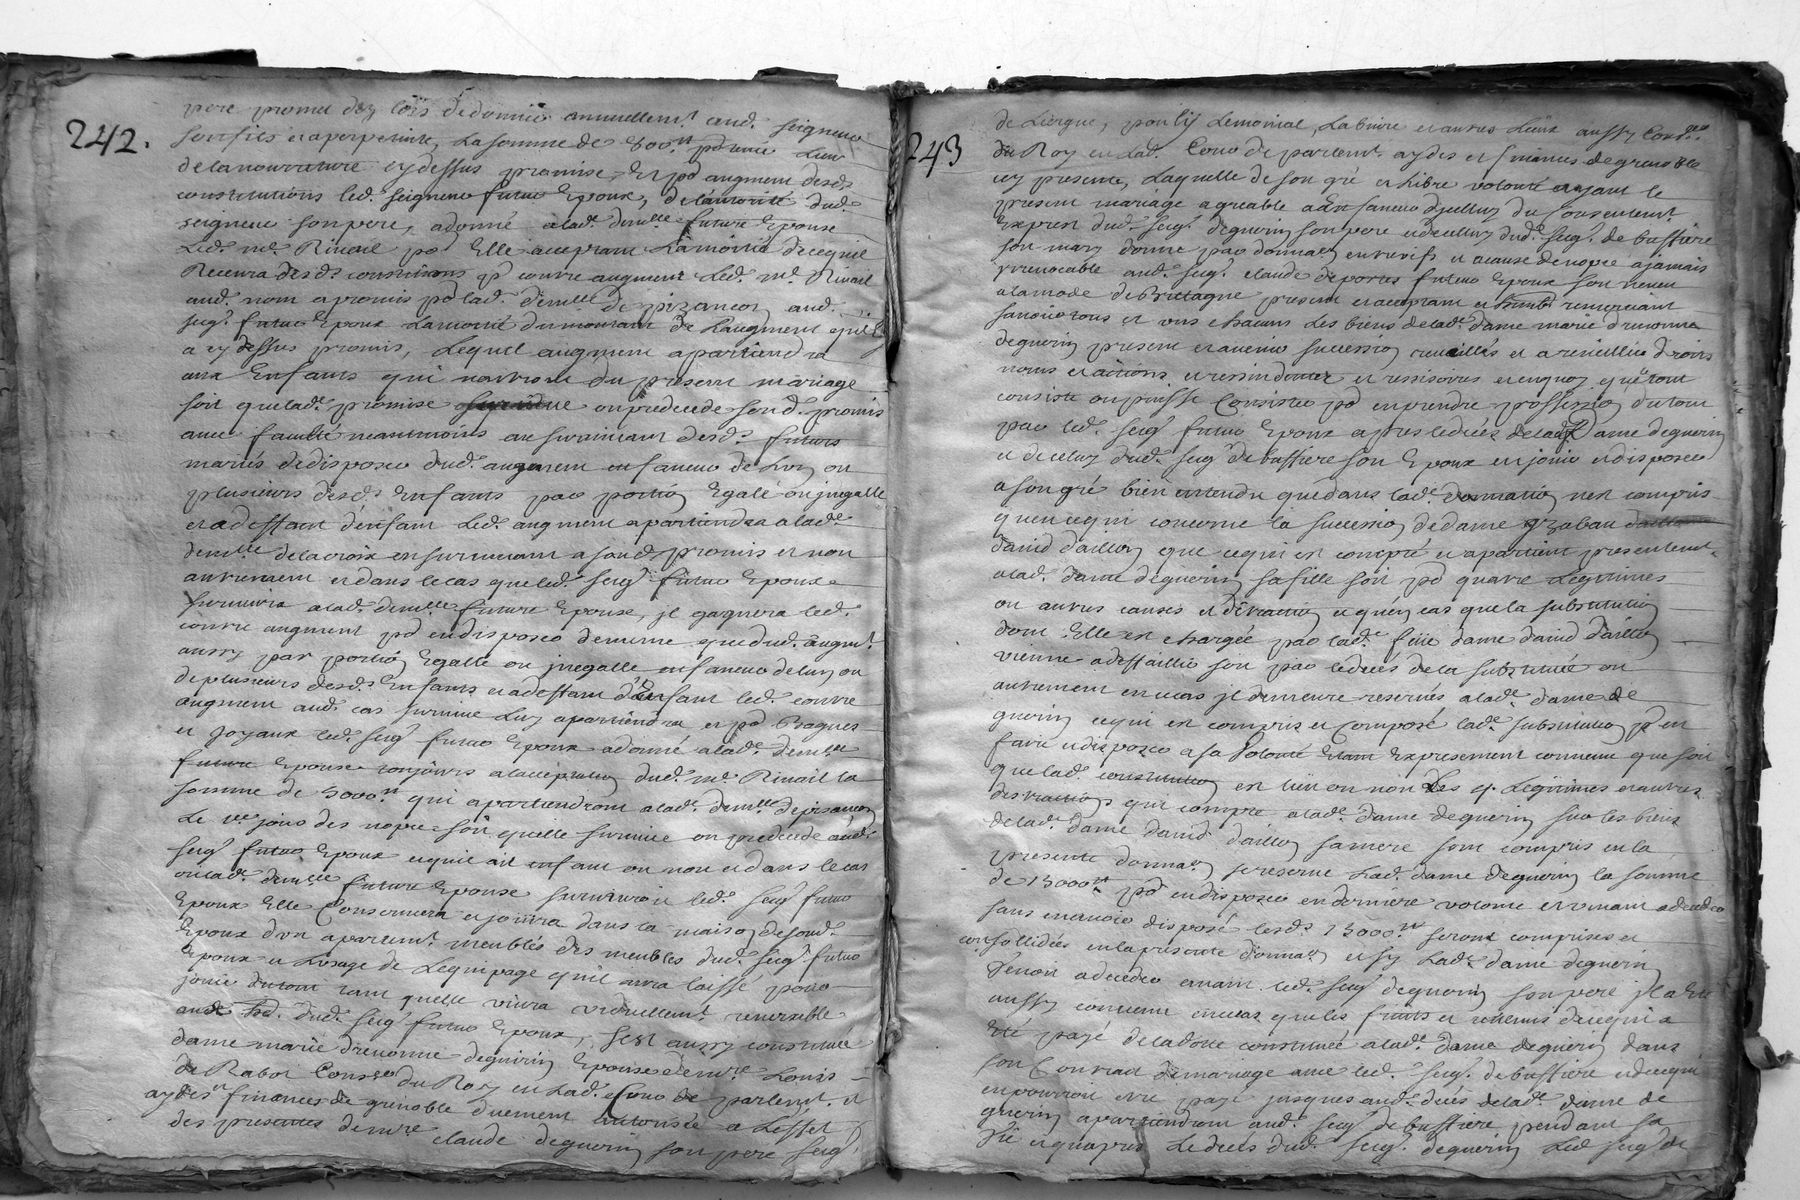 242.
pere promet dez lors de donner annuellemt. aud. seigneur
son fils et a perpetuité, la somme de 500.tt pd. luy
de la nourriture cy dessus promise, Et pd augment desd.
constitutions led. seigneur futur Epoux, de l'autorité dud.
seigneur son pere, a donné a lad.e dem.lle future Epouse
Led. me. Rivail pd Elle acceptant La moitié de ce qu'il
Recevra desd. constitutions pd contre augment Led. me. Rivail
aud. nom a promis pd lad.e dem.lle de pizançon aud.
seigr. futur Epoux La moitié du montant de L'augment qu'il
a cy dessus promis, Lequel augment apartiendra
aux Enfants qui naitront du present mariage
soit que lad.e promise ou predecede sond. promis
avec faculté neantmoins au survivant desd. futurs
mariés de disposer dud. augment en faveur de L'un ou
plusieurs desd. Enfants par portion Egale ou jnegalle
et a deffaut d'enfant Led. augment apartiendra a lad.e
dem.lle de la croix en survivant a sond. promis et non
autrement et dans le cas que led. seigr. futur Epoux
survivra a lad.e dem.lle future Epouse, jl gagnera led.
contre augment pd en disposer de meme que dud. augmt.
aussy par portion Egalle ou jnegalle en faveur de l'un ou
de plusieurs desd. Enfants et a deffaut d'Enfant led. contre
augment aud. cas survive Luy apartiendra et pd Bagues
et joyaux led. seigr futur Epoux a donné a lad.e dem.lle
future Epouse toujours a l'acceptation dud. me. Rivail la
somme de 3000.tt qui apartiendront a lad.e dem.lle de pisançon
Le jour des nopces soit quelle survive ou predecede aud.
seigr futur Epoux et qu'il ait enfant ou non et dans le cas
ou lad.e dem.lle future Epouse surviuroit led. seigr futur
Epoux Elle Conservera et jouira dans la maison de sond.
Epoux d'un apartemt. meublés des meubles dud. seigr futur
Epoux et L'usage de Lequipage qu'il aura laissé pour
jouir du tout tant quelle vivra viduellemt. reversible
aud. dud. seigr futur Epoux, s'est aussy constituée
dame marie de guerin Epouse de mre. Louis
de Rabot Conser du Roy en Lad. Cour de parlemt. et
aydes et finances de grenoble duement autorisée a L'effet
des presentes de mre. claude de guerin son pere seigr.
243
de Lergue, pour luy Lemonial, Labuire et autres Lieux aussy Conser.
du Roy en Lad. Cour de parlemt. aydes et finances de grenoble
icy presente, Laquelle de son gré et Libre volonté ayant le
present mariage agreable a en faveur d'jcelluy du Consentemt.
Exprest dud. seigr. de guerin son pere et de celluy dud. seigr. de bussiere
son mary donne par donnaon entre vifs et a cause de nopce a jamais
jrrevocable aud. seigr. claude de portes futur Epoux son neveu
a la mode de Bretagne present et acceptant et humble remerciant
sauoir tous et uns chacuns Les biens de lad.e dame marie
de guerin present et avenir succession recueillis et a recueillir droits
noms et actions et ressindants et ressisoires et en quoy que le tout
consiste ou puisse Consister pd en prendre possession du tout
par led. seigr futur Epoux apres le decés de lad. Dame de guerin
et de celuy dud. seigr de bussiere son Epoux en jouir et disposer
a son gré bien entendu que dans lad.e donnation n'est compris
que ce qui concerne la succession de dame yzabau
david d'aillon que ce qui est compté et apartient presentemt.
a lad. dame de guerin sa fille soit pd quarte Legitimes
ou autres causes et detraction et qu'en cas que la substitution
dont Elle est chargée par lad.e feue dame david d'aillon
vienne a deffaillir soit par le decés de la substituée ou
autrement en ce cas jl demeure reservés a lad.e dame de
guerin ce qui est compris et Composé lad.e substitution pd en
faire et disposer a sa Volonté Etant Expressement convenu que soit
que lad. constitution est lieu ou non Les qt. Legitimes et autres
destractions qui compte a lad.e dame de guerin sur les biens
de lad.e dame david d'aillon sa mere sont compris en la
presente donnaon se reserve Lad. dame de guerin la somme
de 13000tt pd en disposer en derniere volonté et venant a deceder
sans en avoir disposé lesd. 13000tt seront comprises et
consollidées en la presente donnaon et sy Lad.e dame de guerin
venoit a deceder avant led. seigr de guerin son pere jl a Eté
aussy convenu en ce cas que les fruits et revenus de ce qui a
Eté payé de la dotte constituée a lad.e dame de guerin dans
son Contrat de mariage avec led. seigr. de bussiere et de ce qui
en pourroit etre payé jusques aud. decés de lad.e dame de
guerin apartiendront aud. seigr de bussiere pendant sa
vie et qu'apres Le decés dud. seigr. de guerin Led. seigr de